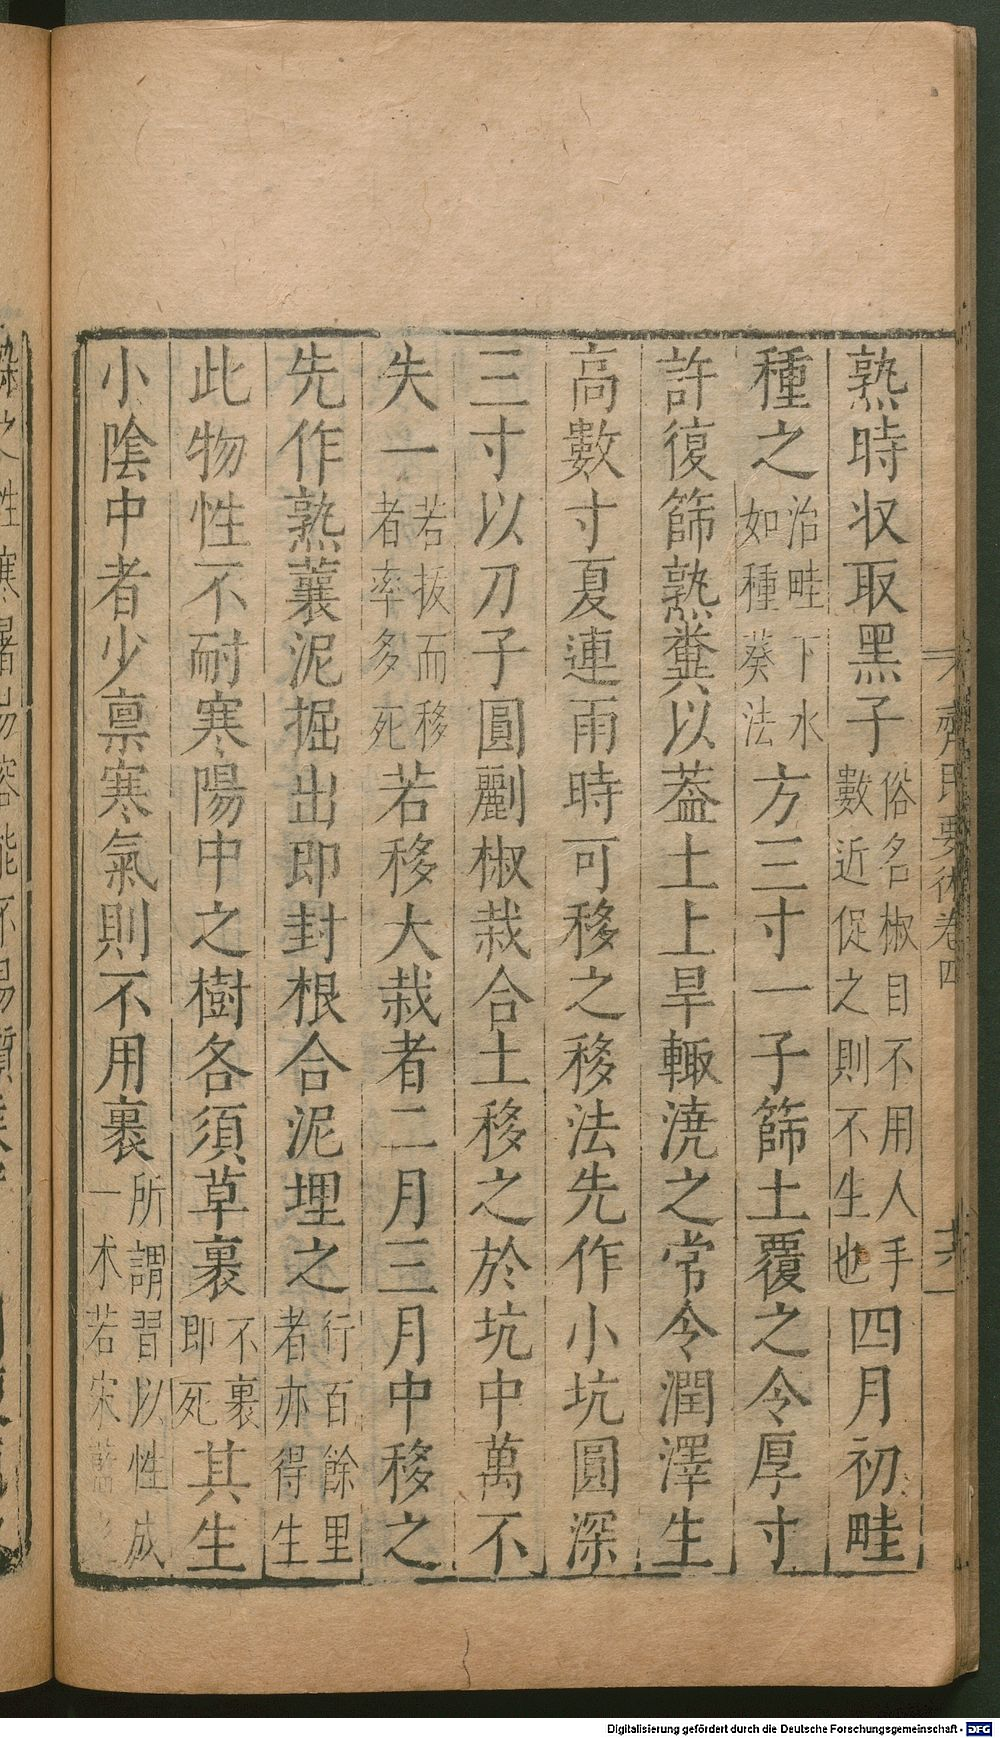 齊民要術卷四
熟時収取黑子俗名椒目不用人手數近促之則不生也四月初畦
種之治畦下水如種葵法方三寸一子篩土覆之令厚寸
許復篩熟糞以葢土上旱輙澆之常令潤澤生
高數寸夏連雨時可移之移法先作小坑圓深
三寸以刀子圓劚椒栽合土移之於坑中萬不
失一若拔而移者率多死若移大栽者二月三月中移之
先作熟蘘泥掘出即封根合泥埋之行百餘里者亦得生
此物性不耐寒陽中之樹各須草裹不裹即死其生
小陰中者少禀寒氣則不用裹所謂習以性成一木若
Digitalisierung gefördert durch die Deutsche Forschungsgemeinschaft - DFG